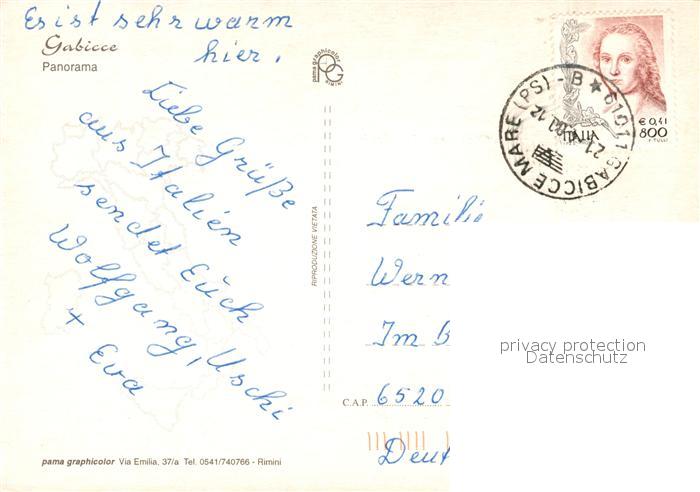 Es ist sehr warm
hier.
Gabicce
Panorama
pama graphicolor
PG
RIMINI
Liebe Grüße
aus Italien
sendet Euch
Wolfgang, Uschi
+ Eva
RIPRODUZIONE VIETATA
61011 GABICCE MARE (PS) - B
21
12
ITALIA
€ 0,41
800
F. TULLI
Familie
Wern
Im B
C.A.P. 6520
Deut
privacy protection
Datenschutz
pama graphicolor Via Emilia, 37/a Tel. 0541/740766 - Rimini